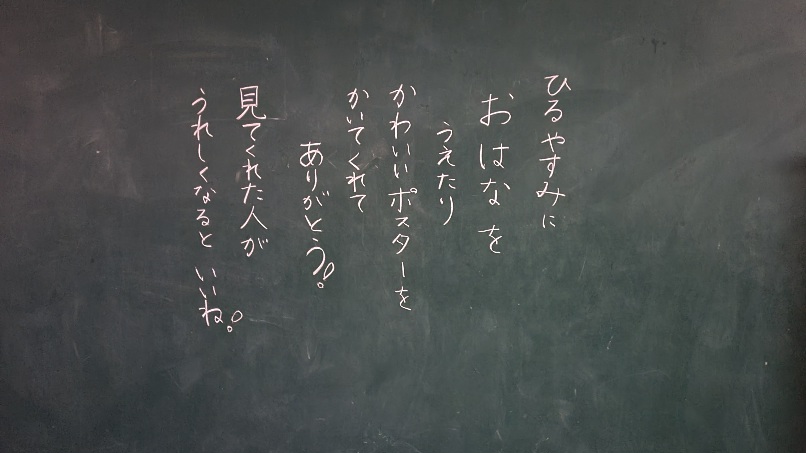 ひるやすみに
おはなを
うえたり
かわいいポスターを
かいてくれて
ありがとう!
見てくれた人が
うれしくなるといいね!